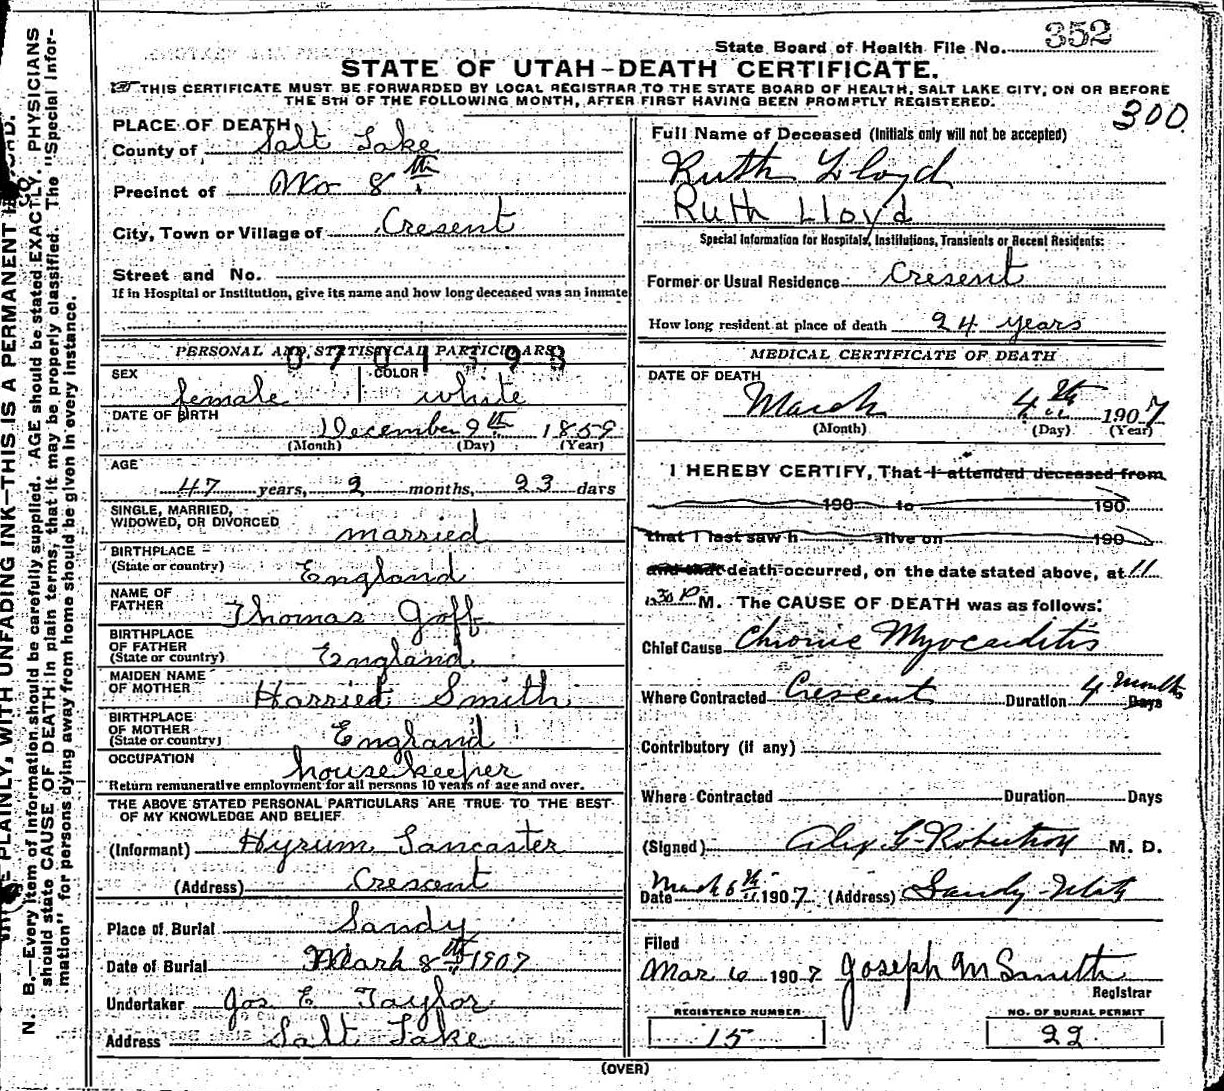 State Board of Health File No. 352
STATE OF UTAH-DEATH CERTIFICATE.
THIS CERTIFICATE MUST BE FORWARDED BY LOCAL REGISTRAR TO THE STATE BOARD OF HEALTH, SALT LAKE CITY, ON OR BEFORE
THE 5TH OF THE FOLLOWING MONTH, AFTER FIRST HAVING BEEN PROMPTLY REGISTERED.
300
PLACE OF DEATH
County of Salt Lake
Precinct of No 8th
City, Town or Village of Cresent
Street and No.
If in Hospital or Institution, give its name and how long deceased was an inmate
PERSONAL AND STATISTICAL PARTICULARS
SEX female COLOR white
DATE OF BIRTH December 9th 1859
(Month) (Day) (Year)
AGE
47 years, 2 months, 23 days
SINGLE, MARRIED,
WIDOWED, OR DIVORCED married
BIRTHPLACE
(State or country) England
NAME OF
FATHER Thomas Goff
BIRTHPLACE
OF FATHER
(State or country) England
MAIDEN NAME
OF MOTHER Harriet Smith
BIRTHPLACE
OF MOTHER
(State or country) England
OCCUPATION housekeeper
Return remunerative employment for all persons 10 years of age and over.
THE ABOVE STATED PERSONAL PARTICULARS ARE TRUE TO THE BEST
OF MY KNOWLEDGE AND BELIEF
(Informant) Hyrum Lancaster
(Address) Crescent
Place of Burial Sandy
Date of Burial March 8th 1907
Undertaker Jos E Taylor
Address Salt Lake
Full Name of Deceased (Initials only will not be accepted)
Ruth Lloyd
Ruth Lloyd
Special Information for Hospitals, Institutions, Transients or Recent Residents:
Former or Usual Residence Cresent
How long resident at place of death 24 years
MEDICAL CERTIFICATE OF DEATH
DATE OF DEATH
March 4th 1907
(Month) (Day) (Year)
I HEREBY CERTIFY, That I attended deceased from
190 to 190
that I last saw h alive on 190
and that death occurred, on the date stated above, at 11
30 P M. The CAUSE OF DEATH was as follows:
Chief Cause Chronic Myocarditis
Where Contracted Crescent Duration 4 months Days
Contributory (if any)
Where Contracted Duration Days
(Signed) Alex G. Robertson M. D.
Date March 6th 1907 (Address) Sandy Utah
Filed
Mar 6 1907 Joseph M Smith
Registrar
REGISTERED NUMBER
15
NO. OF BURIAL PERMIT
22
(OVER)
PLAINLY, WITH UNFADING INK-THIS IS A PERMANENT
N. B.—Every item of information should be carefully supplied. AGE should be stated EXACTLY. PHYSICIANS
should state CAUSE OF DEATH in plain terms, that it may be properly classified. The "Special Infor-
mation" for persons dying away from home should be given in every instance.